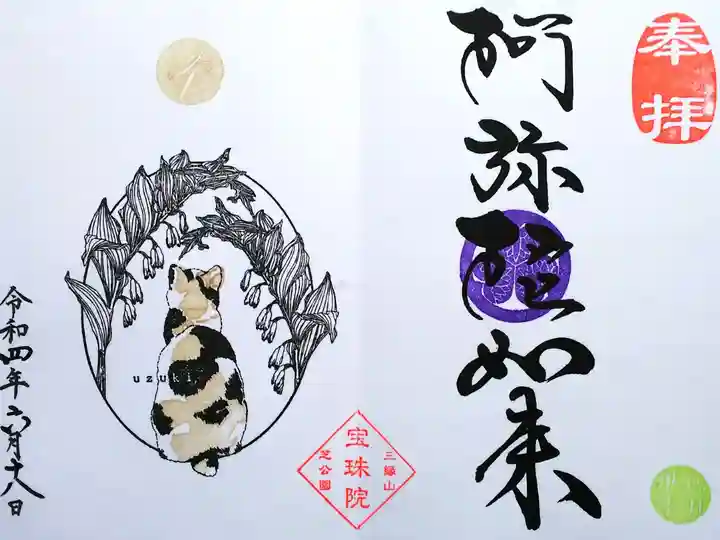 奉拝
阿弥陀如来
三縁山
宝珠院
芝公園
uzuki
令和四年六月十八日